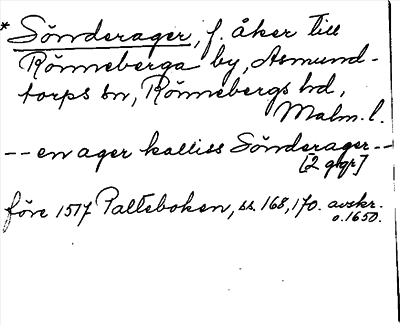 *Sönderager, f. åker till
Rönneberga by, Asmund-
torps sn, Rönnebergs hd,
Malm. l.
-- en ager kalliss Sönderager --
[2 ggr]
före 1517 Palteboken, ss. 168, 170. avskr.
o. 1650.